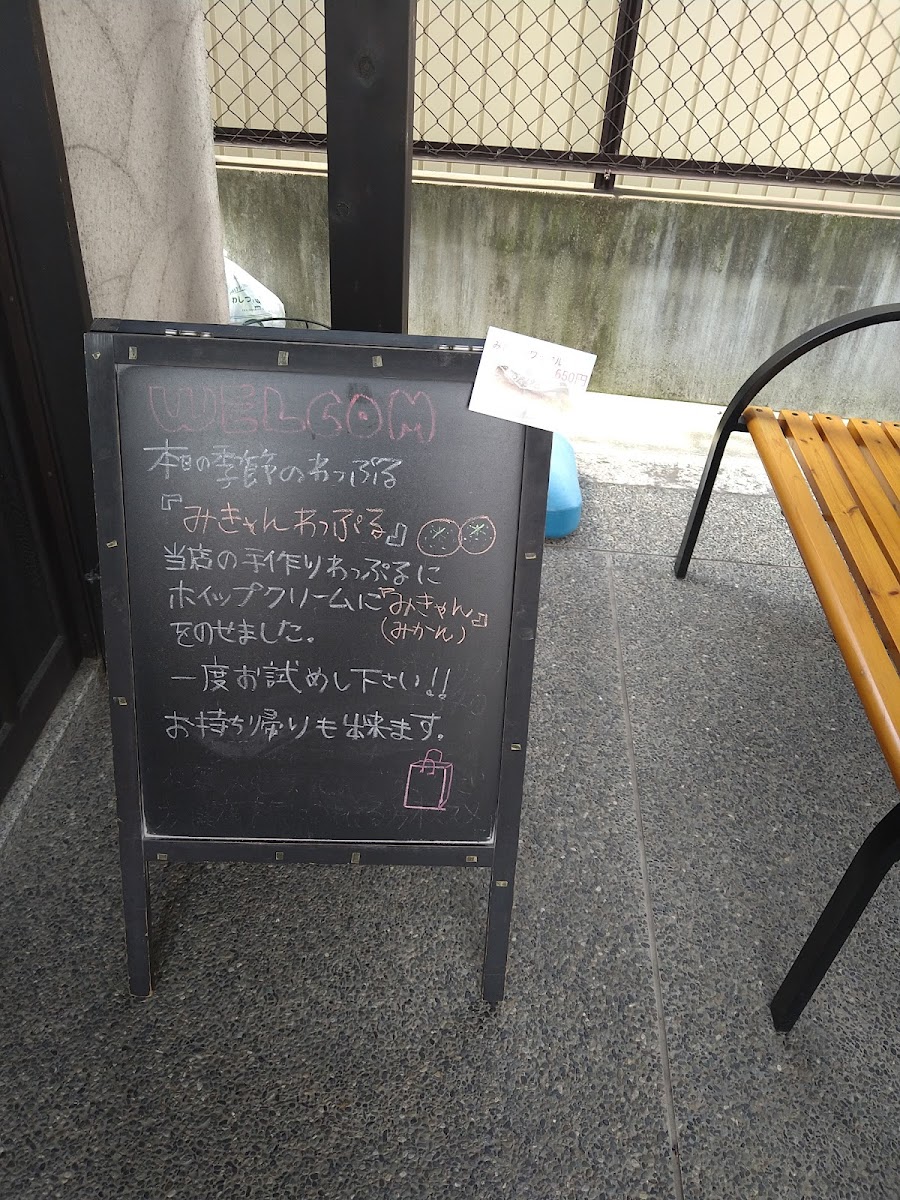 WELCOM
本日の季節のわっぷる
『みきゃんわっぷる』
当店の手作りわっぷるに
ホイップクリームに『みきゃん』
(みかん)
をのせました。
一度お試め し下さい!!
お持ち帰りも出来ます。
650円